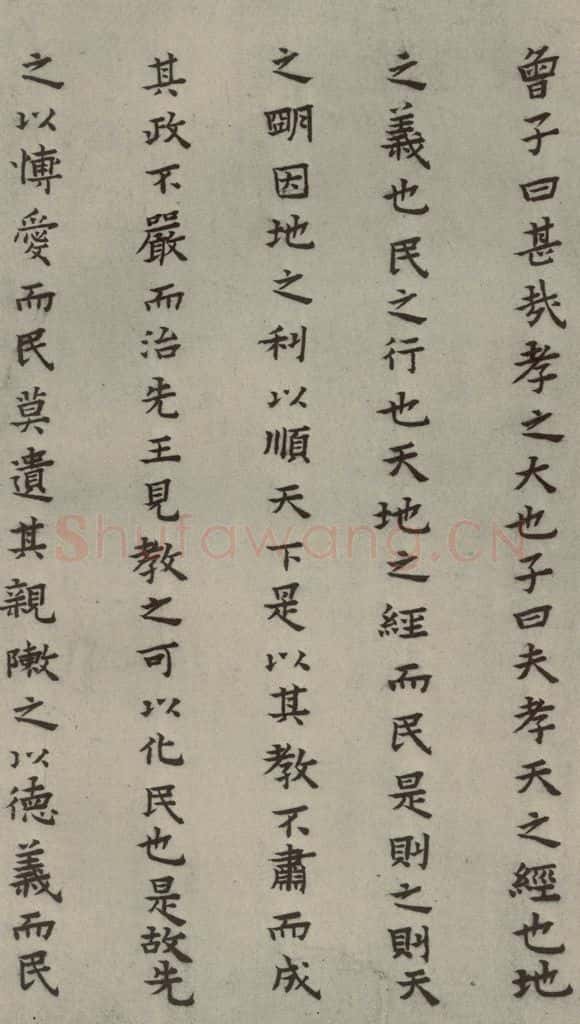 曾子曰甚哉孝之大也子曰夫孝天之經也地
之義也民之行也天地之經而民是則之則天
之明因地之利以順天下是以其教不肅而成
其政不嚴而治先王見教之可以化民也是故先
之以博愛而民莫遺其親陳之以德義而民
Shufawang.CN